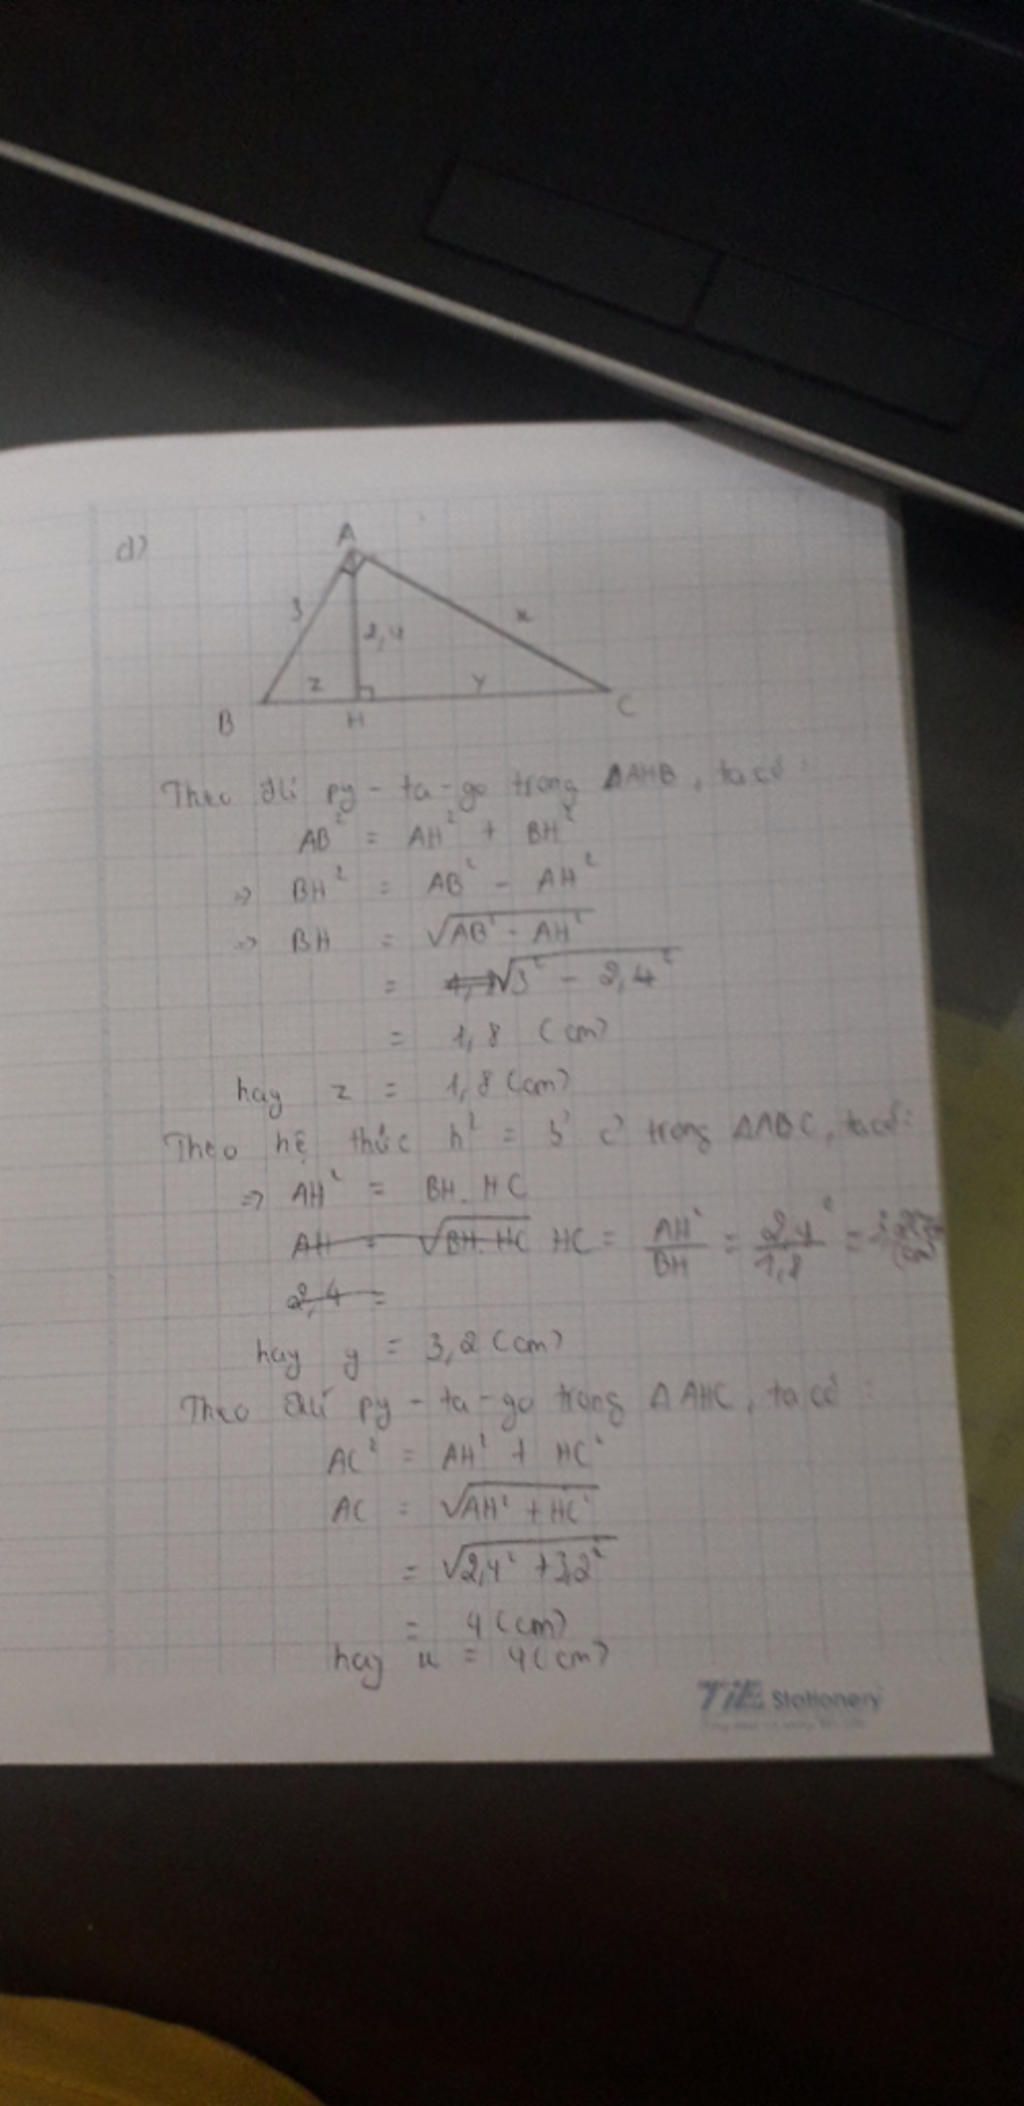 d)
A
3
2,4
x
z
y
B
H
C
Theo đlí py - ta - go trong ΔAHB, ta có :
AB² = AH² + BH²
=> BH² = AB² - AH²
=> BH = √AB² - AH²
= √3² - 2,4²
= 1,8 (cm)
hay z = 1,8 (cm)
Theo hệ thức h² = b' c' trong ΔABC, ta có :
=> AH² = BH. HC
AH = √BH. HC HC = AH²/BH = 2,4²/1,8 =
2,4 =
hay y = 3,2 (cm)
Theo đlí py - ta - go trong ΔAHC, ta có :
AC² = AH² + HC²
AC = √AH² + HC²
= √2,4² + 3,2²
= 4 (cm)
hay x = 4 (cm)
TiE Stationery